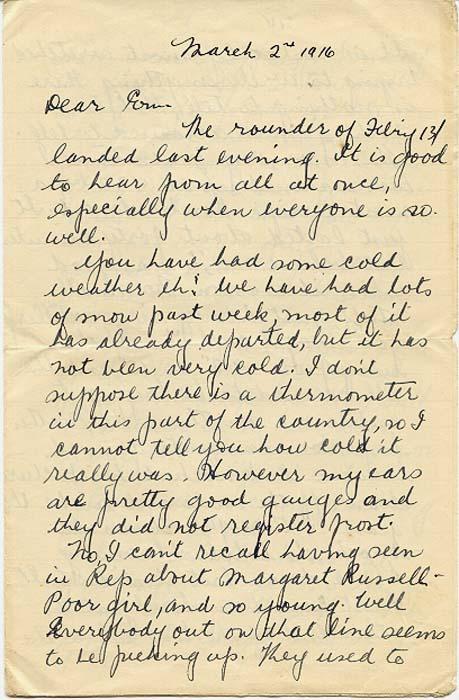 March 2nd 1916
Dear Ern
The rounder of Feb'ry 13/
landed last evening. It is good
to hear from all at once,
especially when everyone is so
well.
You have had some cold
weather eh! We have had lots
of snow past week, most of it
has already departed, but it has
not been very cold. I don't
suppose there is a thermometer
in this part of the country, so I
cannot tell you how cold it
really was. However my ears
are pretty good gauges and
they did not register frost.
No, I can't recall having seen
in Rep about Margaret Russell-
Poor girl, and so young. Well
Everybody out on that line seems
to be picking up. They used to